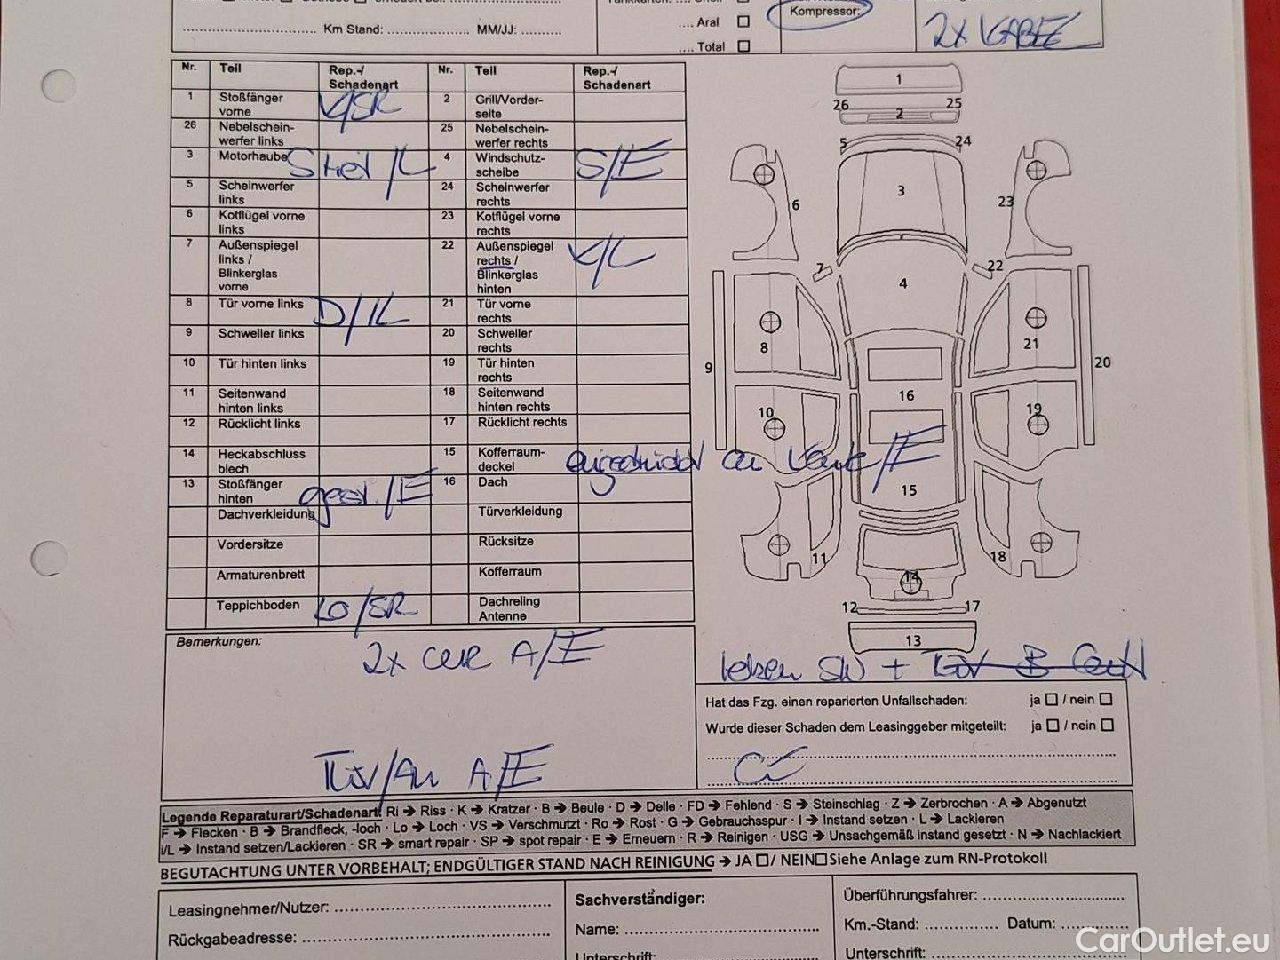 Km Stand: MM/JJ:
.... Aral
.... Total
Kompressor:
2x KABEL
Nr. Teil Rep.-/ Schadenart Nr. Teil Rep.-/ Schadenart
1 Stoßfänger vorne K/SR 2 Grill/Vorder-seite
26 Nebelschein-werfer links 25 Nebelschein-werfer rechts
3 Motorhaube 4 Windschutz-scheibe S/E
5 Scheinwerfer links 24 Scheinwerfer rechts
6 Kotflügel vorne links 23 Kotflügel vorne rechts
7 Außenspiegel links / Blinkerglas vorne 22 Außenspiegel rechts / Blinkerglas hinten K/L
8 Tür vorne links D/IL 21 Tür vorne rechts
9 Schweller links 20 Schweller rechts
10 Tür hinten links 19 Tür hinten rechts
11 Seitenwand hinten links 18 Seitenwand hinten rechts
12 Rücklicht links 17 Rücklicht rechts
14 Heckabschluss blech 15 Kofferraum-deckel
13 Stoßfänger hinten 16 Dach
Dachverkleidung Türverkleidung
Vordersitze Rücksitze
Armaturenbrett Kofferraum
Teppichboden LO/SR Dachreling Antenne
1
26 2 25
5 24
3
6 23
7 22
4
8 21
9 20
16
10 19
15
11 18
14
12 17
13
Bemerkungen:
2x A/E
TÜV/AU A/E
Hat das Fzg. einen reparierten Unfallschaden: ja / nein
Wurde dieser Schaden dem Leasinggeber mitgeteilt: ja / nein
Legende Reparaturart/Schadenart: Ri → Riss · K → Kratzer · B → Beule · D → Delle · FD → Fehlend · S → Steinschlag · Z → Zerbrochen · A → Abgenutzt
F → Flecken · B → Brandfleck, -loch · Lo → Loch · VS → Verschmutzt · Ro → Rost · G → Gebrauchsspur · I → Instand setzen · L → Lackieren
I/L → Instand setzen/Lackieren · SR → smart repair · SP → spot repair · E → Erneuern · R → Reinigen · USG → Unsachgemäß instand gesetzt · N → Nachlackiert
BEGUTACHTUNG UNTER VORBEHALT; ENDGÜLTIGER STAND NACH REINIGUNG → JA / NEIN Siehe Anlage zum RN-Protokoll
Leasingnehmer/Nutzer:
Rückgabeadresse:
Sachverständiger:
Name:
Unterschrift:
Überführungsfahrer:
Km.-Stand: Datum:
Unterschrift:
CarOutlet.eu